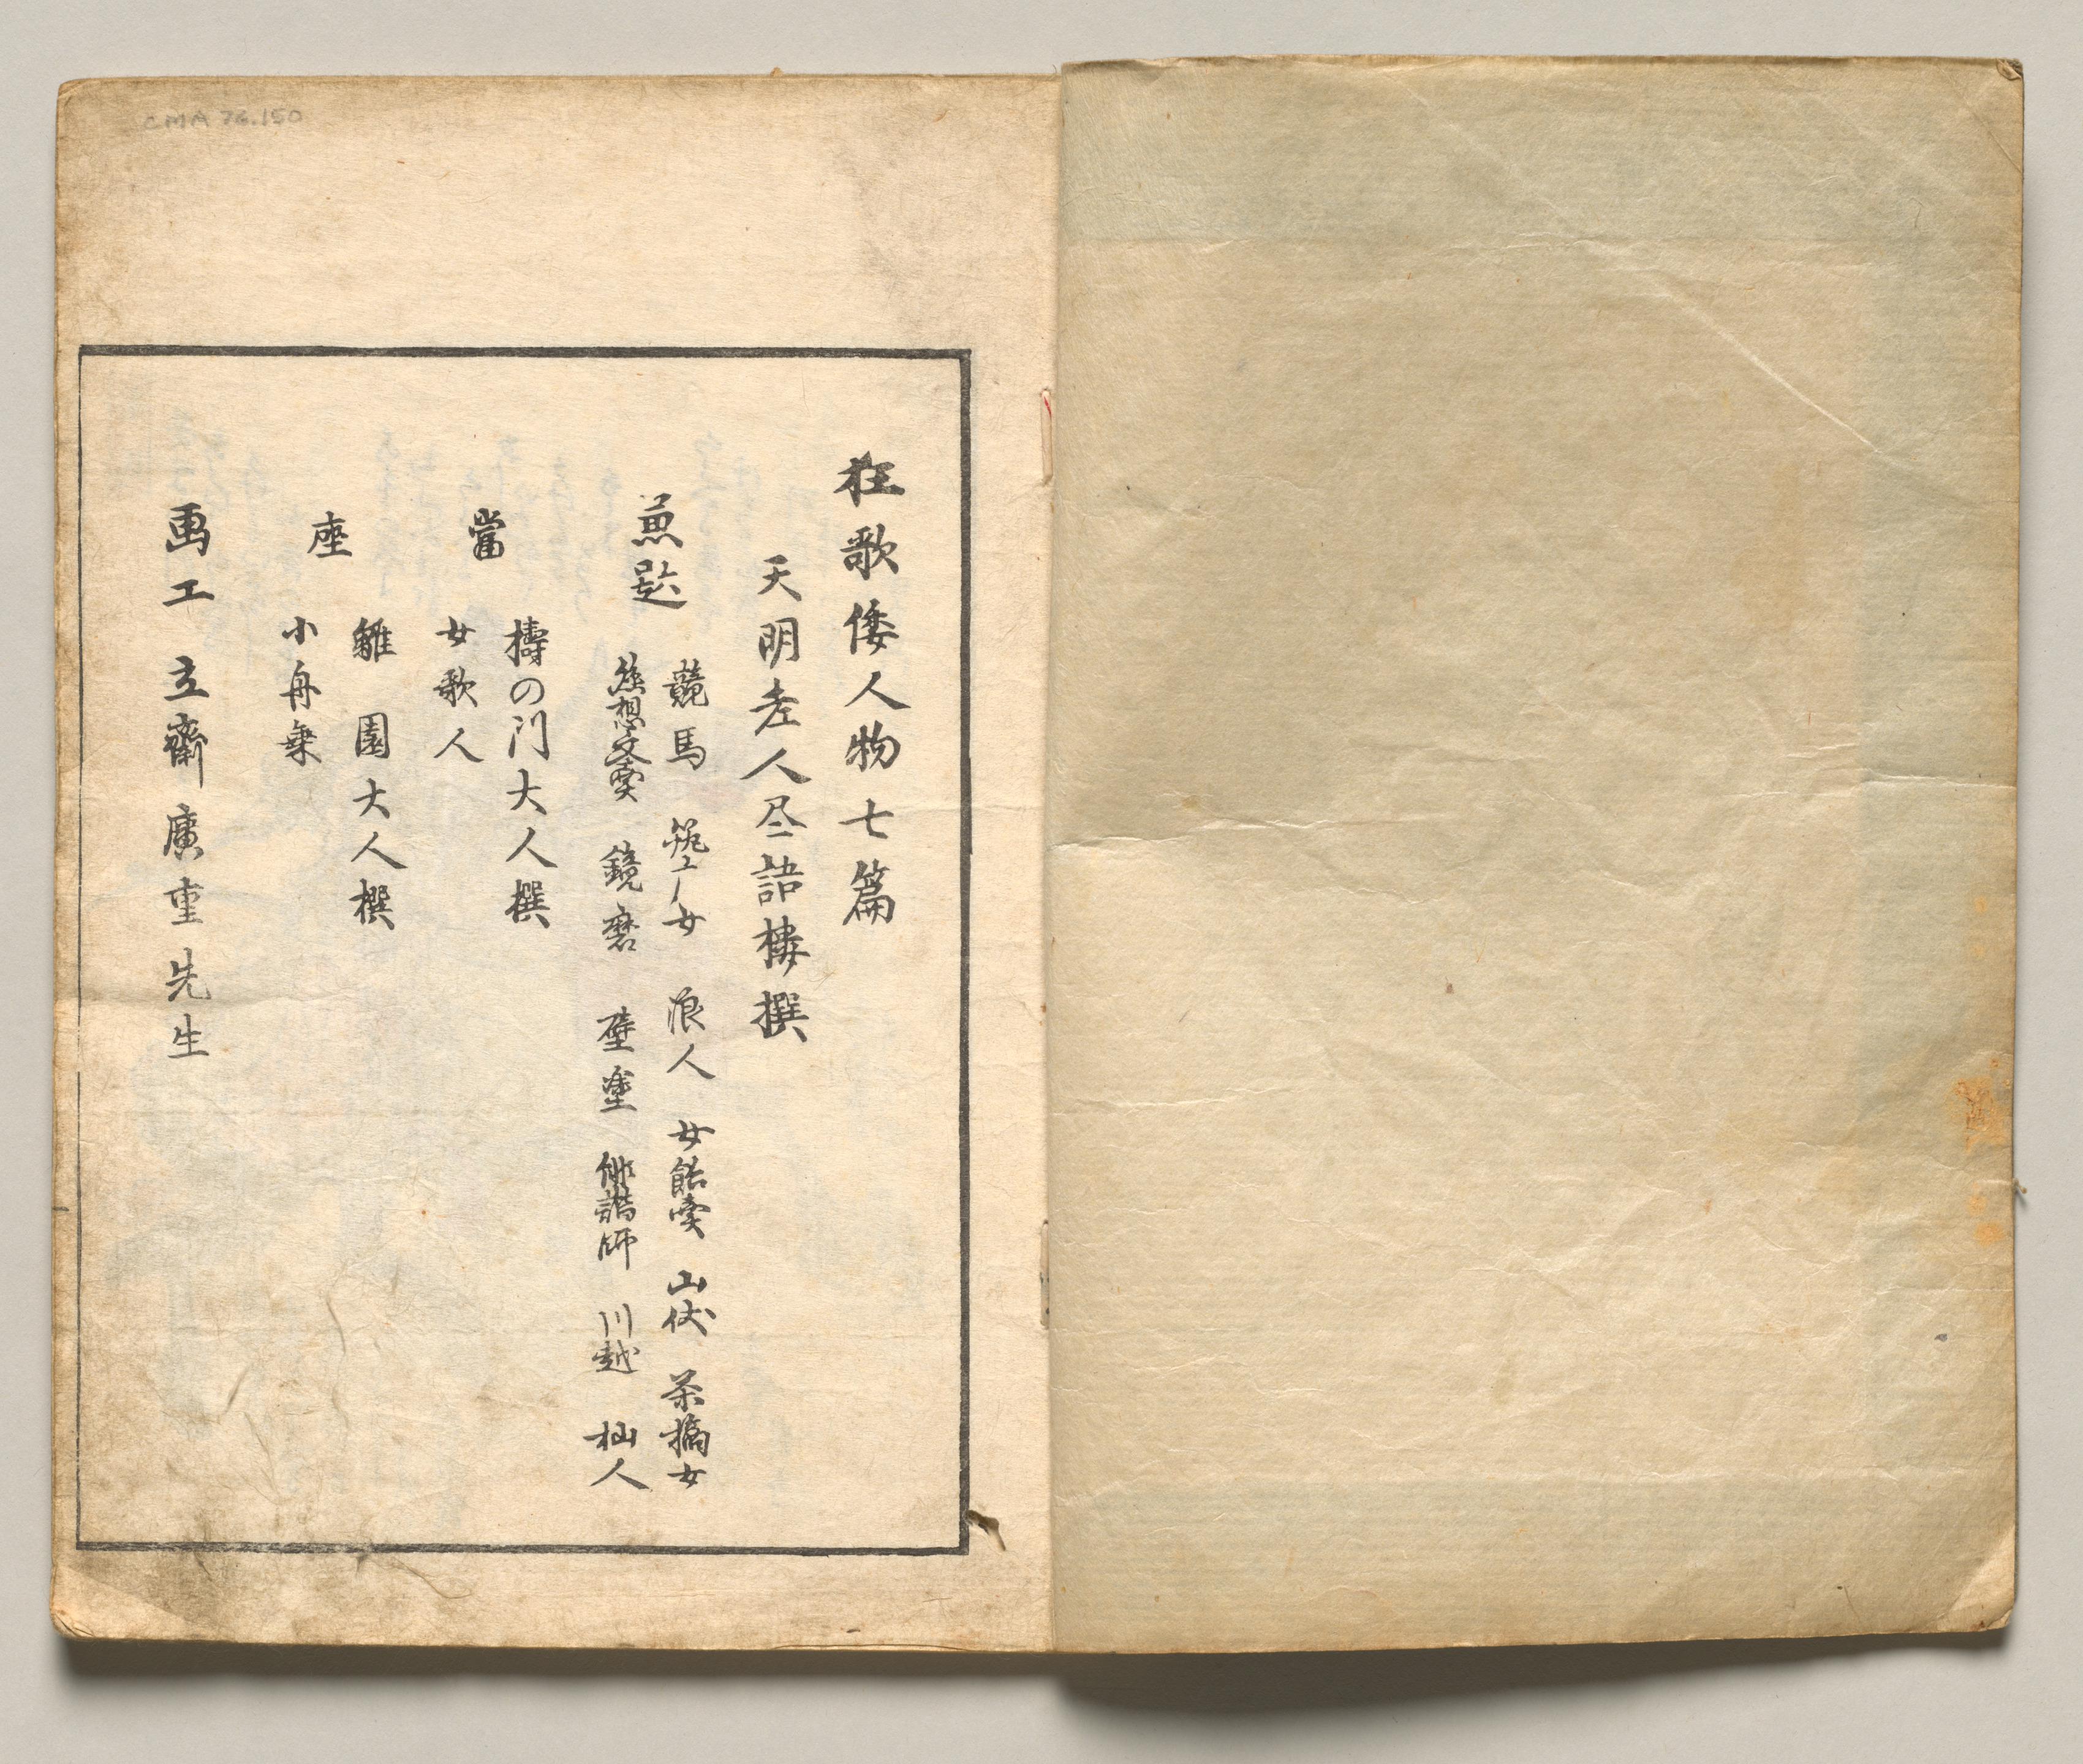 狂歌倭人物七篇
天明老人尽語楼撰
兼題
競馬 筑ノ女 浪人 女飴賣 山伏 茶摘女
懸想文賣 鏡磨 壁塗 俳諧師 川越 杣人
當
檮の門大人撰
女歌人
座
雛園大人撰
小舟乗
画工 立齋廣重先生
CMA 76.150